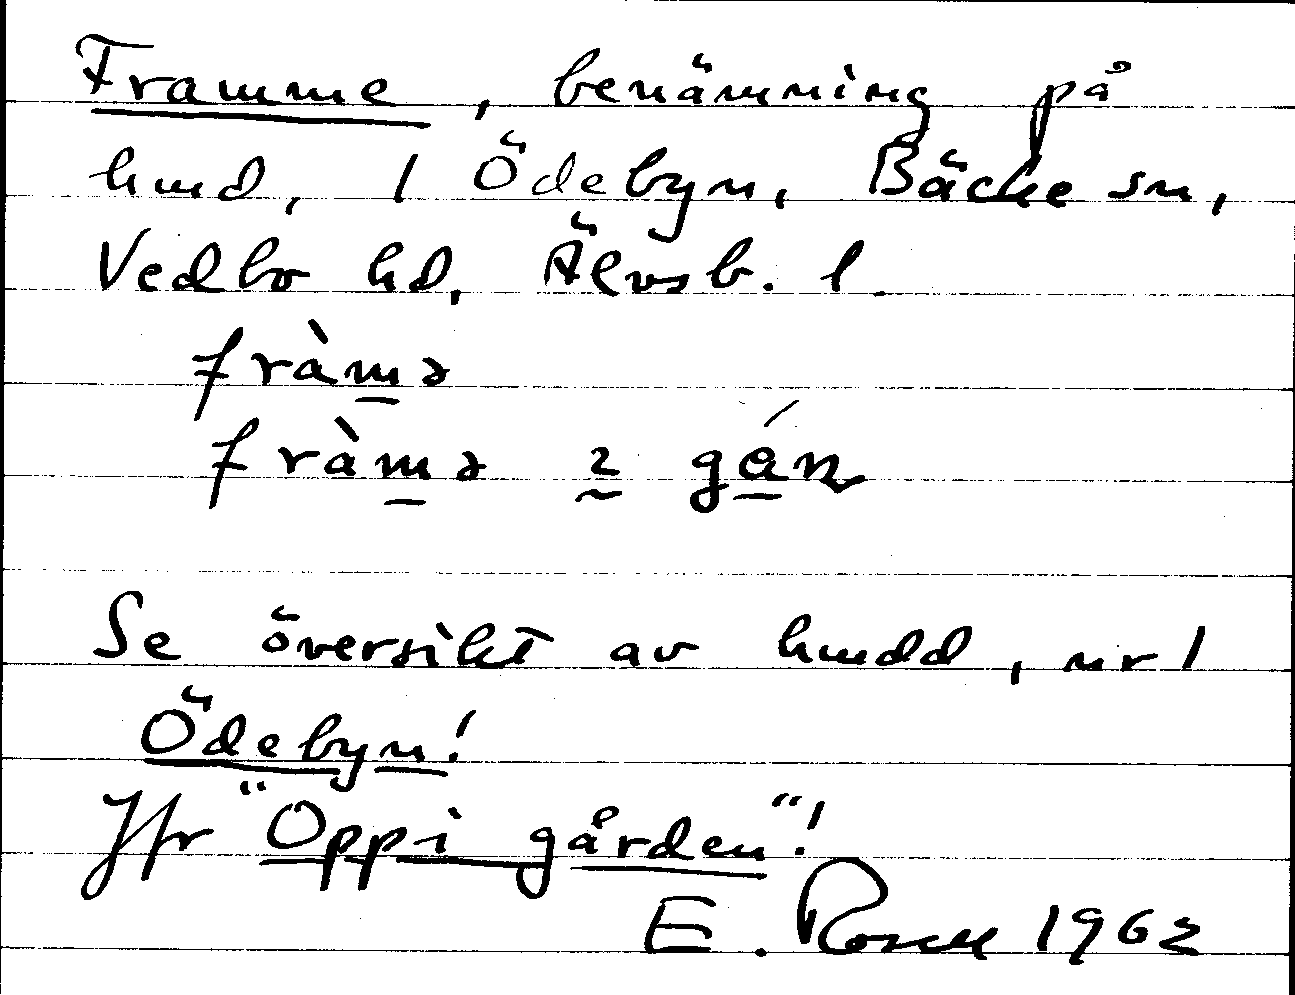 Framme, benämning på
hmd, 1 Ödebyn, Bäcke sn,
Vedbo hd, Älvsb. l.
fràmə
fràmə 2 gán
Se översikt av hmdd, nr 1
Ödebyn!
Jfr "Oppi gården"!
E. Rosell 1962